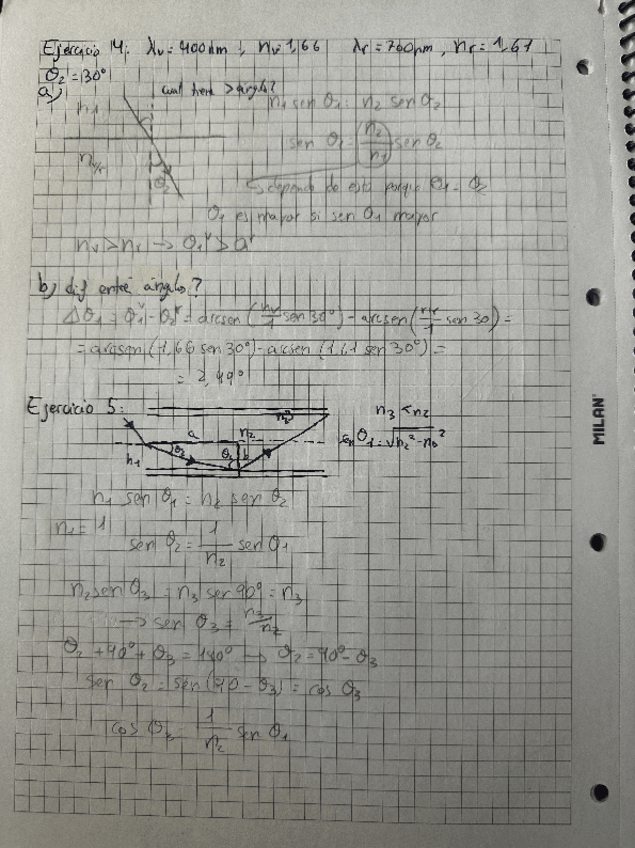 Ejercicio 14: λv = 400nm, nv=1,66 λr = 700nm, nr = 1,61
θ2 = 30°
a) cual tiene > ángulo?
n1
n1 sen θ1 = n2 sen θ2
sen θ1 = (n2/n1) sen θ2
nv/r θ2
↳ depende de esto porque θ1 = θ2
θ1 es mayor si sen θ1 mayor
nv > nr → θ1v >
b) dif entre ángulo?
Δθ1 = θ1v - θ2r = arcsen (nv/1 sen 30°) - arcsen (nr/1 sen 30) =
= arcsen (1,66 sen 30°) - arcsen (1,61 sen 30°) =
= 2,49°
Ejercicio 5:
n3 n3 < n2
a n2 sen θ1 =
θ2 θ3 b
n1
n1 sen θ1 = n2 sen θ2
n1 = 1
sen θ2 = 1/n2 sen θ1
n2 sen θ3 = n3 sen 90° = n3
→ sen θ3 = n3/n2
θ2 + 90° + θ3 = 180° → θ2 = 90° - θ3
sen θ2 = sen (90 - θ3) = cos θ3
cos θ3 = 1/n2 sen θ1
MILAN